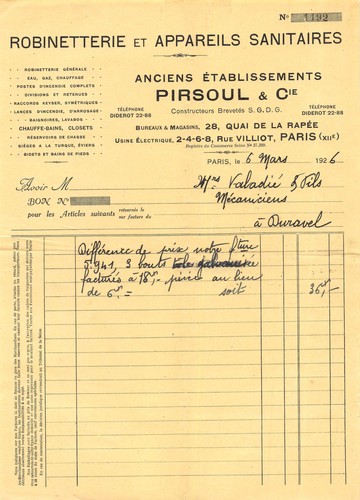 No 1192
ROBINETTERIE ET APPAREILS SANITAIRES
ROBINETTERIE GÉNÉRALE
EAU, GAZ, CHAUFFAGE
POSTES D'INCENDIE COMPLETS
DIVISIONS ET RETENUES
RACCORDS KEYSER, SYMÉTRIQUES
LANCES D'INCENDIE, D'ARROSAGE
BAIGNOIRES, LAVABOS
CHAUFFE-BAINS, CLOSETS
RÉSERVOIRS DE CHASSE
SIÈGES A LA TURQUE, ÉVIERS
BIDETS ET BAINS DE PIEDS
ANCIENS ÉTABLISSEMENTS
PIRSOUL & CIE
Constructeurs Brevetés S. G. D. G.
TÉLÉPHONE
DIDEROT 22-88
TÉLÉPHONE
DIDEROT 22-88
BUREAUX & MAGASINS, 28, QUAI DE LA RAPÉE
USINE ÉLECTRIQUE, 2-4-6-8, RUE VILLIOT, PARIS (XIIe)
Registre du Commerce Seine No
PARIS, le 6 Mars 1926
Avoir M
Mrs Valadié & Fils
Mécaniciens
BON No
pour les Articles suivants retournés le
sur facture du
à Duravel
Différence de prix notre fture
5941, 3 bouts
facturés à 18 pièce au lieu
de 6 soit 36